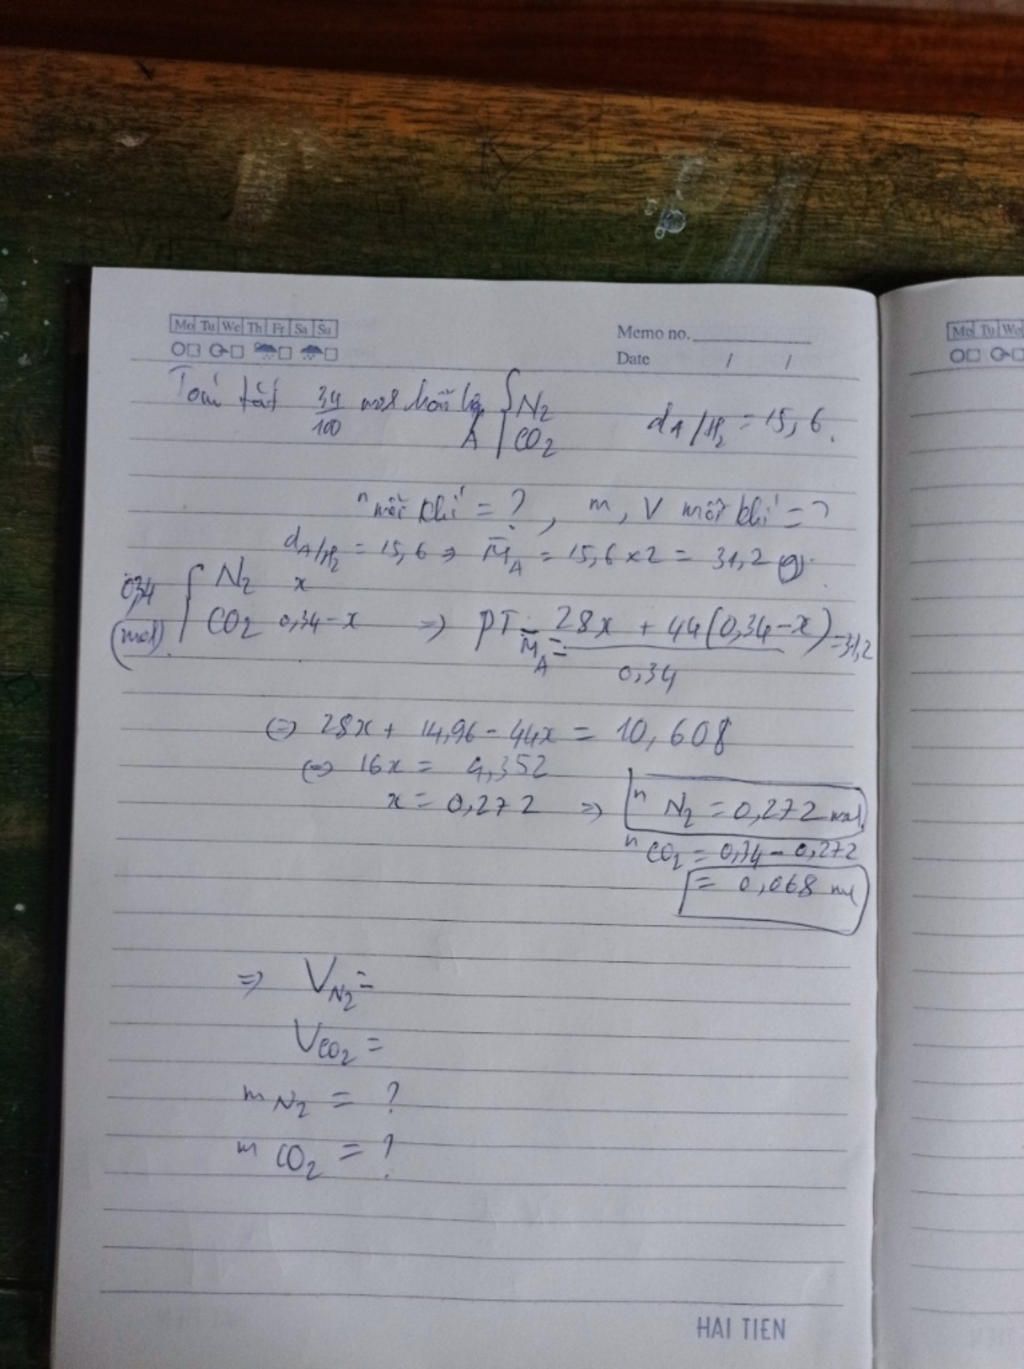 Mo Tu We Th Fr Sa Su
Memo no.
Date / /
Mo Tu We
Tóm tắt 34/100 mol hỗn hợp A { N2 CO2 dA/H2 = 15,6.
n mỗi khí = ? , m, V mỗi khí = ?
dA/H2 = 15,6 => M̄A = 15,6 x 2 = 31,2 g.
0,34 (mol) { N2 x
CO2 0,34-x => PT M̄A = 28x + 44(0,34-x) / 0,34 = 31,2
(=) 28x + 14,96 - 44x = 10,608
(=) 16x = 4,352
x = 0,272 => n N2 = 0,272 mol
n CO2 = 0,34 - 0,272
= 0,068 mol
=> VN2 =
VCO2 =
m N2 = ?
m CO2 = ?
HAI TIEN